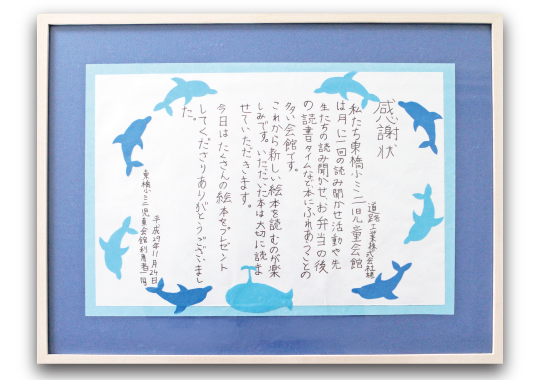 感謝状
道路工業株式会社様
私たち東橋小ミニ児童会館
は月に一回の読み聞かせ活動や先
生たちの読み聞かせ、お弁当の後
の読書タイムなど本にふれあうことの
多い会館です。
これから新しい絵本を読むのが楽
しみです。いただいた本は大切に読ま
せていただきます。
今日はたくさんの絵本をプレゼント
してくださりありがとうございまし
た。
平成29年11月24日
東橋小ミニ児童会館利用者一同